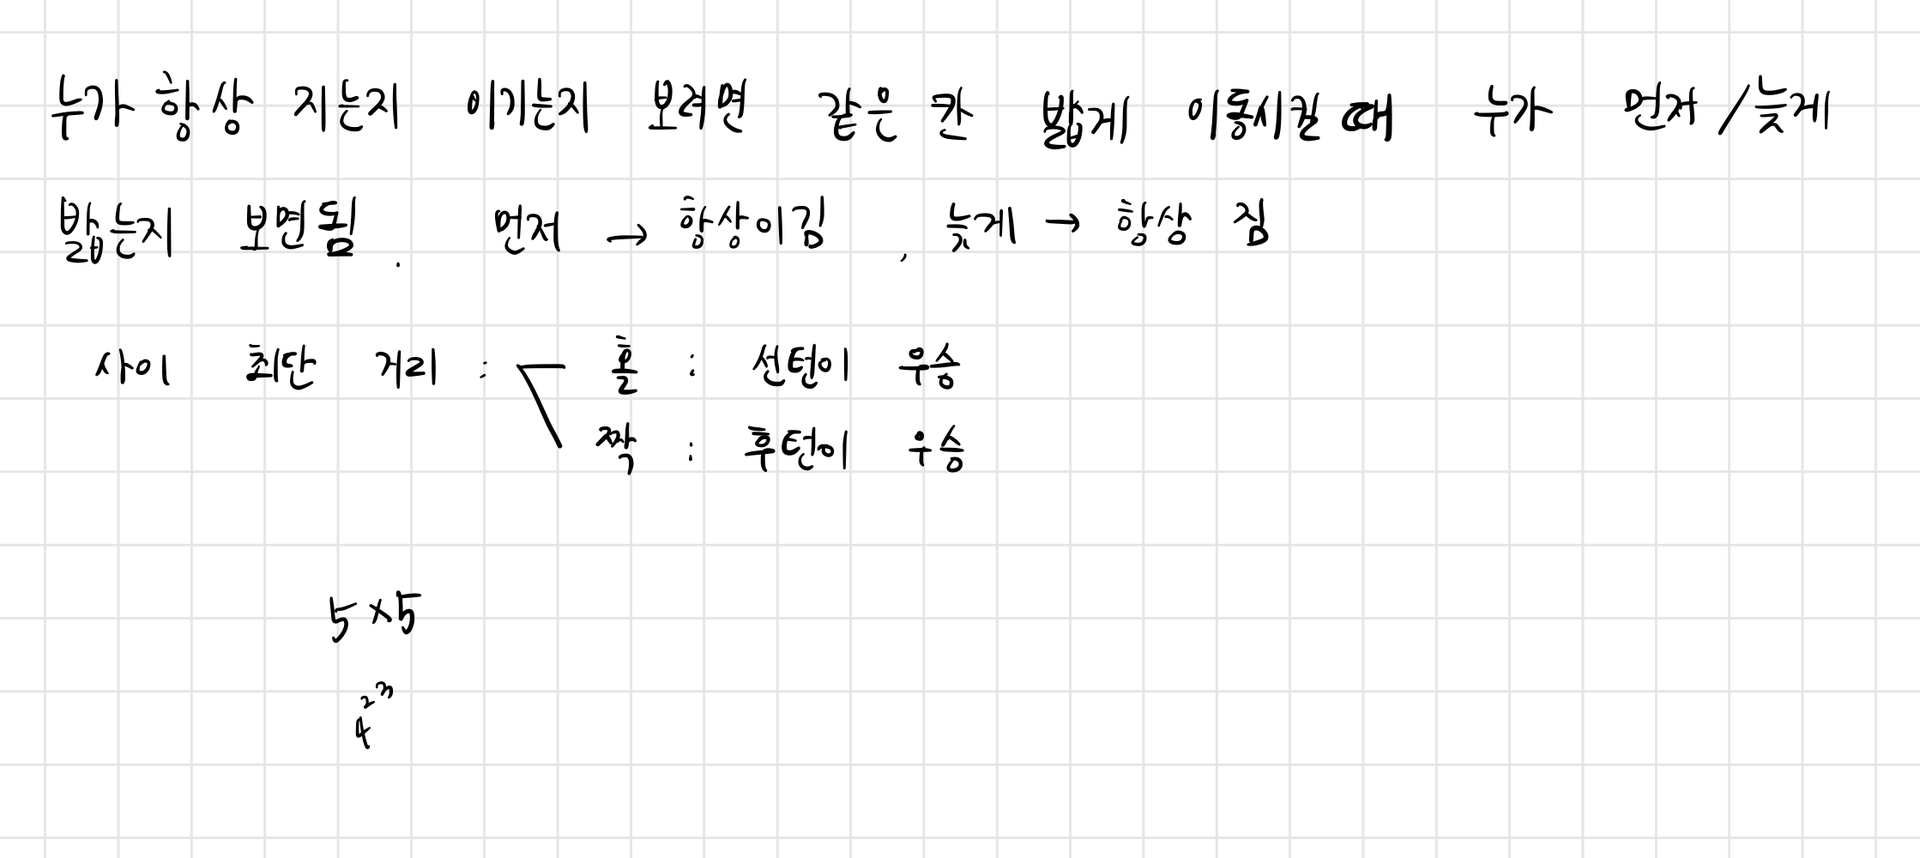 누가 항상 지는지 이기는지 보려면 같은 칸 밟게 이동시킬 때 누가 먼저/늦게
밟는지 보면됨. 먼저 → 항상이김, 늦게 → 항상 짐
사이 최단 거리 : 홀 : 선턴이 우승
짝 : 후턴이 우승
5×5
4²³